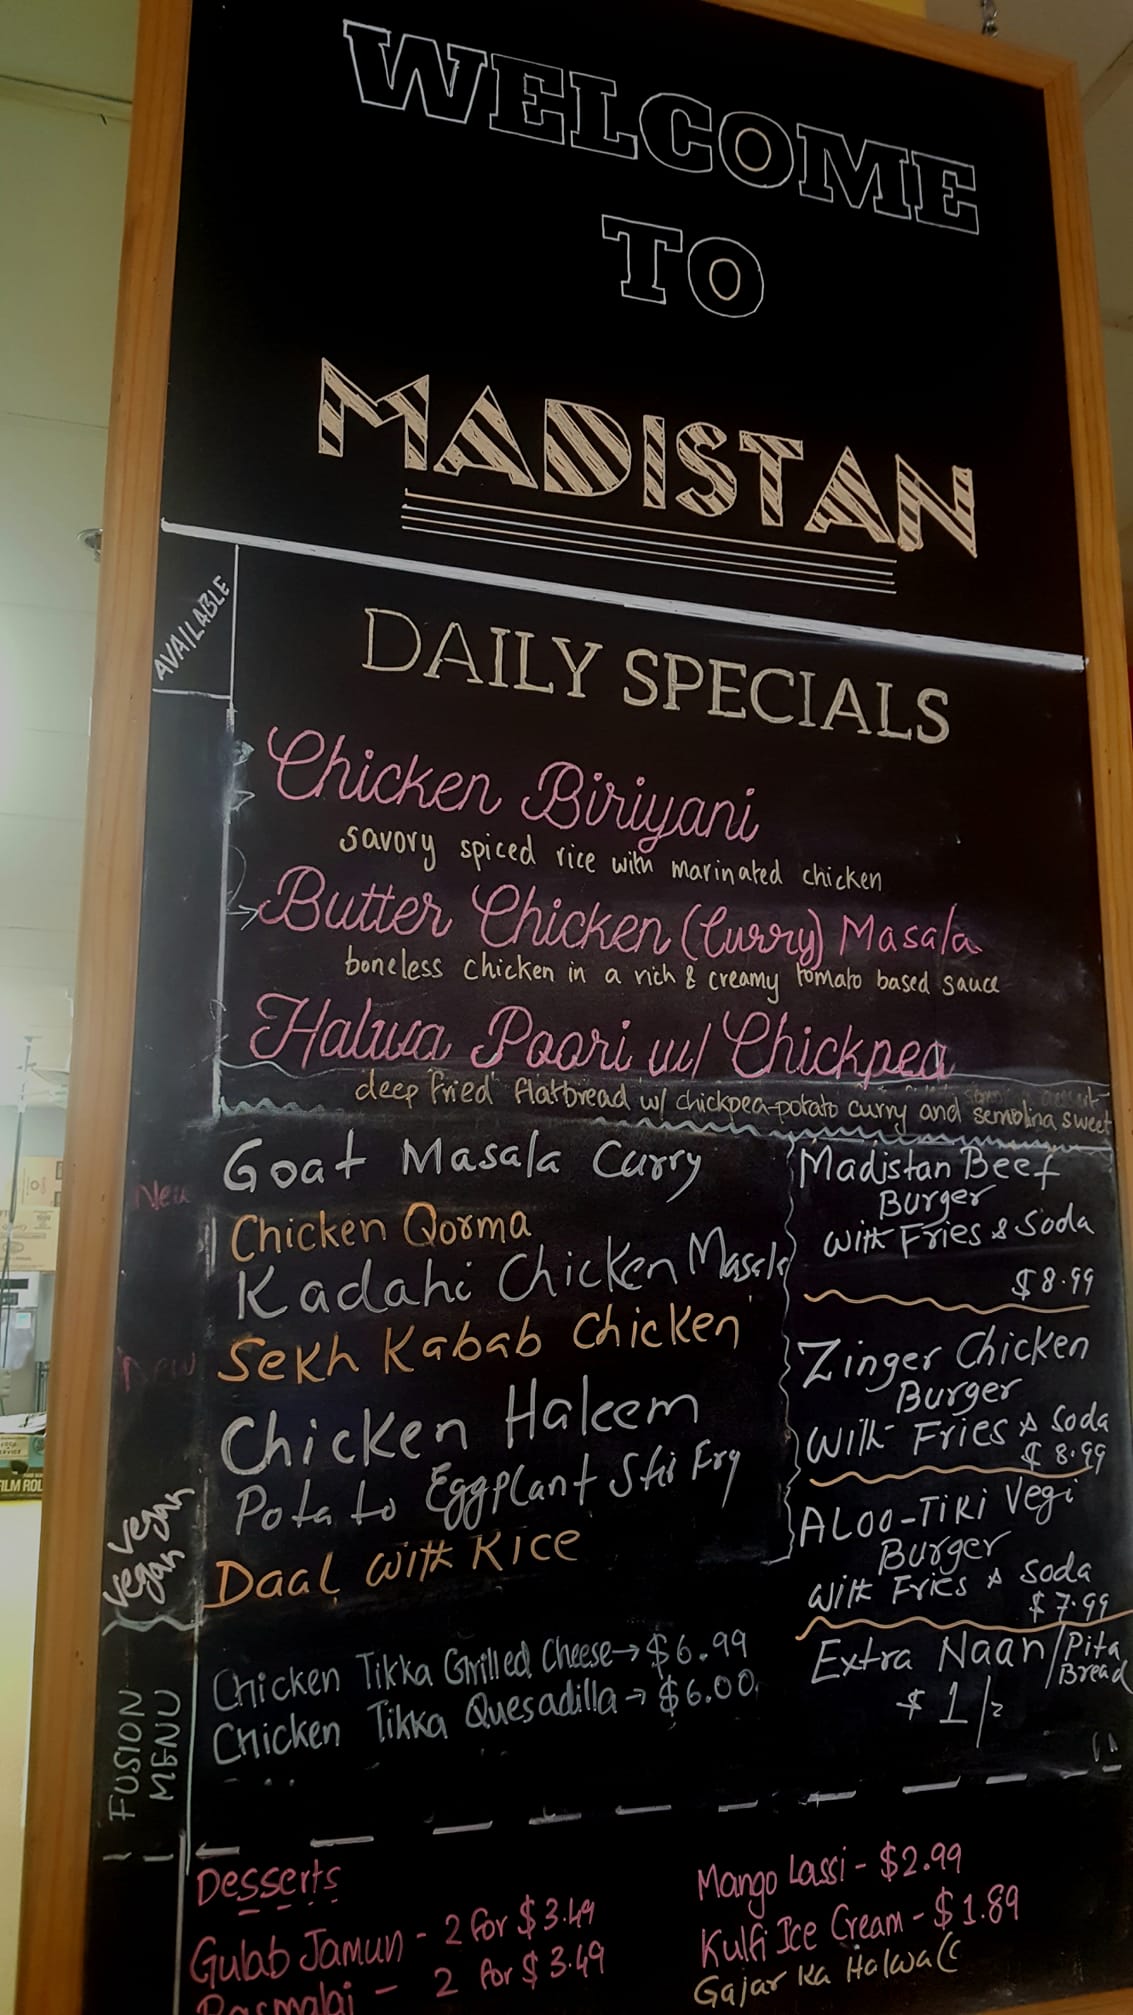 WELCOME
TO
MADISTAN
AVAILABLE
DAILY SPECIALS
Chicken Biriyani
savory spiced rice with marinated chicken
Butter Chicken (Curry) Masala
boneless chicken in a rich & creamy tomato based sauce
Halwa Poori w/ Chickpea
deep fried flatbread w/ chickpea-potato curry and semolina sweet
Goat Masala Curry
New
Chicken Qorma
Kadahi Chicken Masala
New
Sekh Kabab Chicken
Chicken Haleem
Potato Eggplant Stir Fry
Daal with Rice
Veg
Vegan
Madistan Beef
Burger
with Fries & Soda
$8.99
Zinger Chicken
Burger
with Fries & Soda
$8.99
ALOO-TIKI Vegi
Burger
with Fries & Soda
$7.99
Extra Naan/Pita
Bread
$1/-
FUSION
MENU
Chicken Tikka Grilled Cheese→$6.99
Chicken Tikka Quesadilla→$6.00
Desserts
Gulab Jamun - 2 for $3.49
Rasmalai - 2 for $3.49
Mango Lassi - $2.99
Kulfi Ice Cream - $1.89
Gajar Ka Halwa
FILM ROL